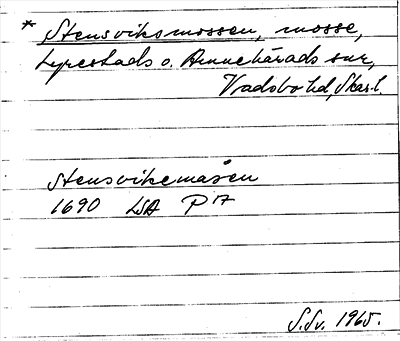 * Stensviksmossen, mosse,
Lyrestads o. Amnehärads snr,
Vadsbo hd, Skar.l.
Stensvikemåsen
1690 LSA P 17
S.Sv. 1965.